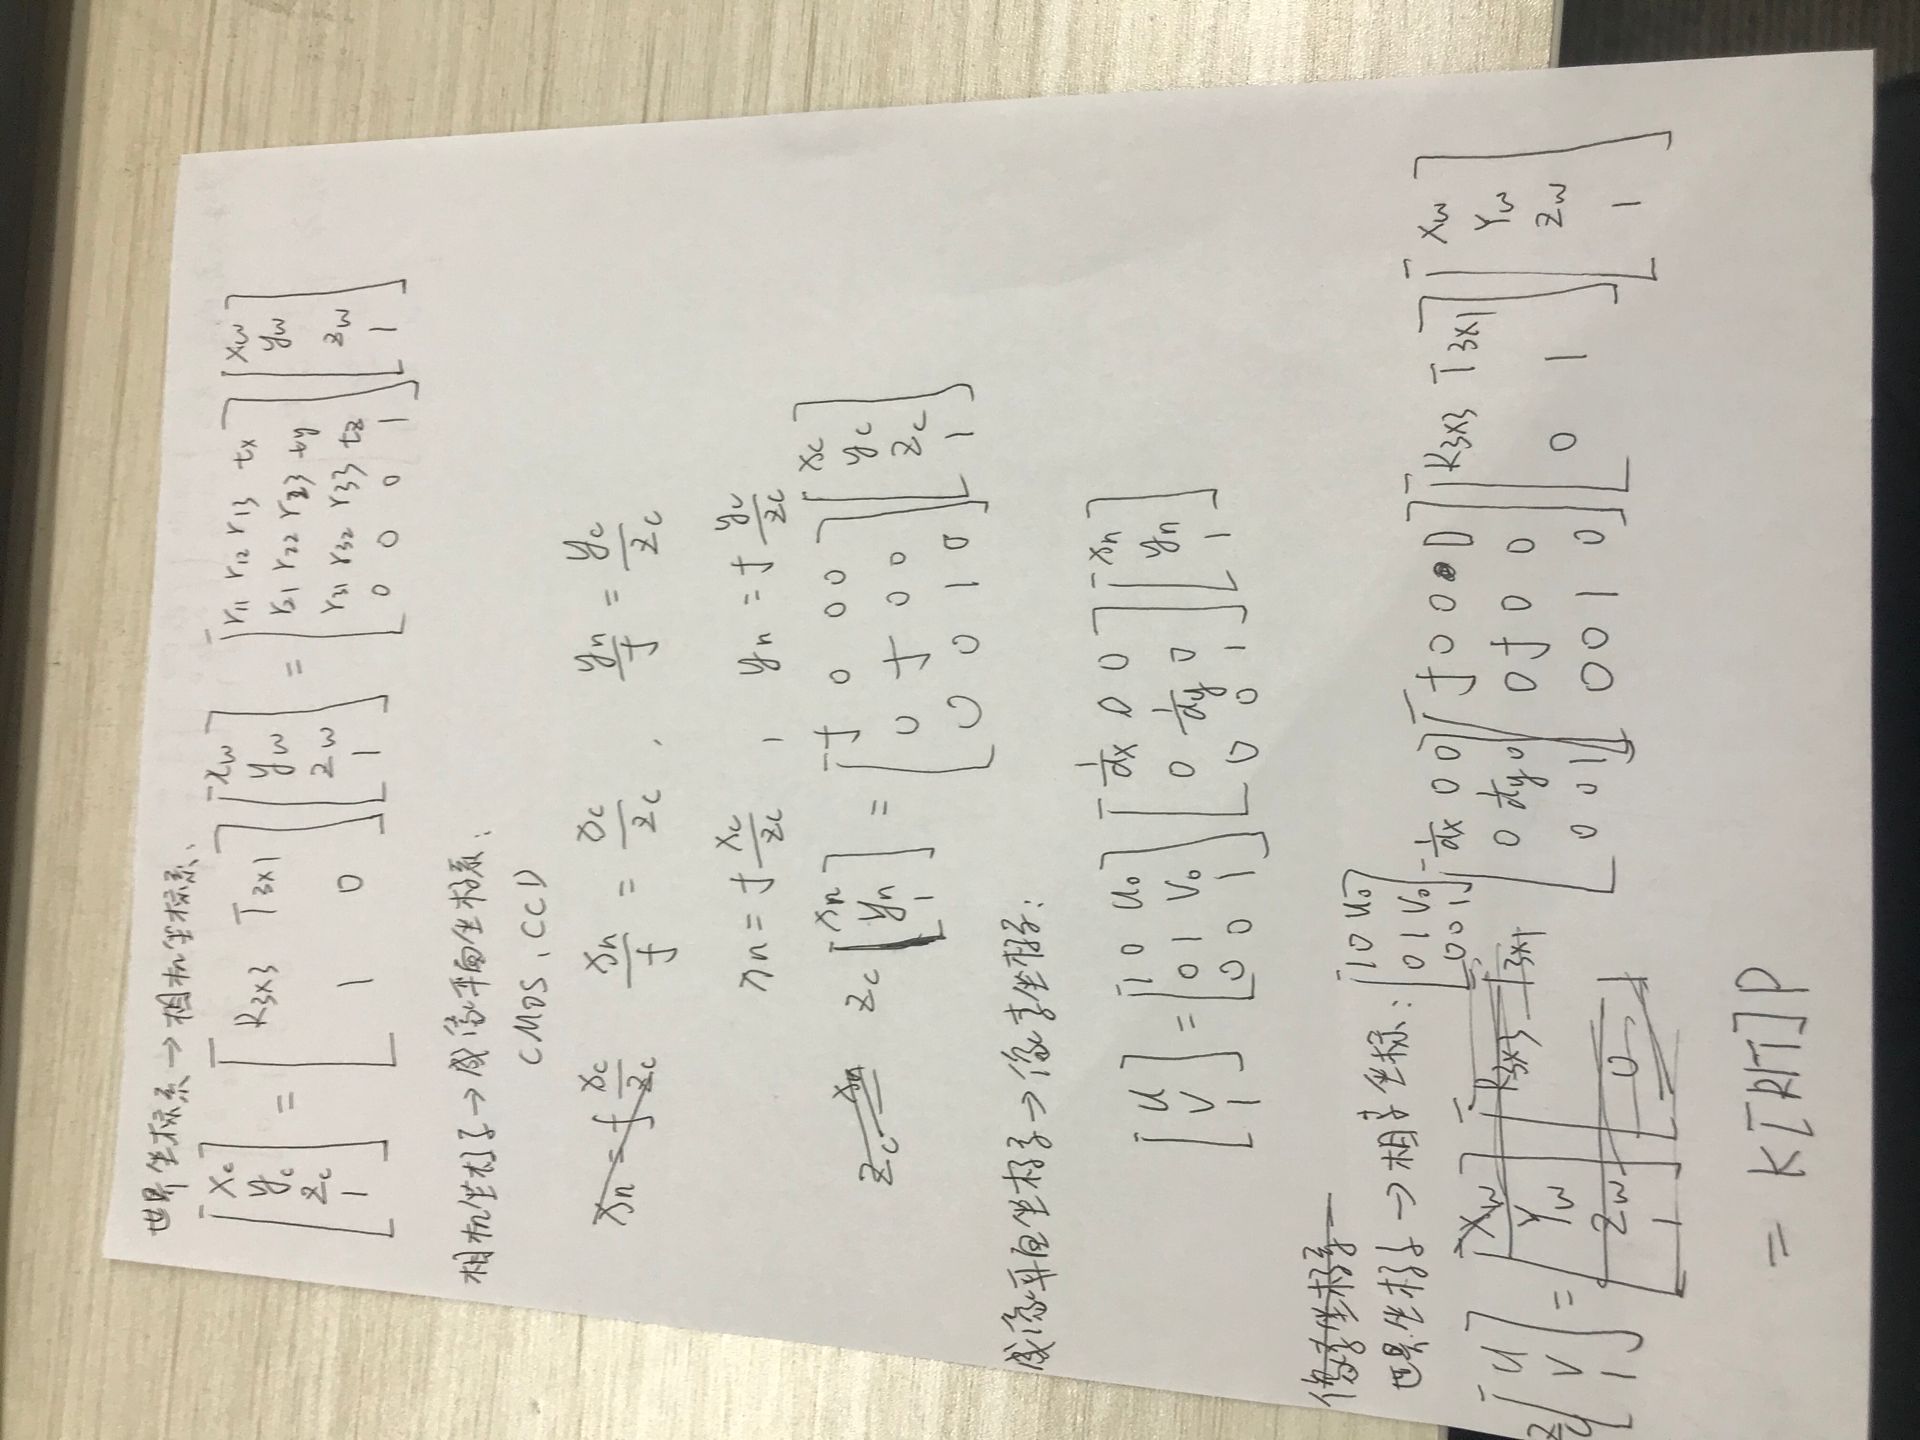 世界坐标系→相机坐标系:
[xc yc zc 1] = [R3×3 T3×1 1 0] [xw yw zw 1] = [r11 r12 r13 tx r21 r22 r23 ty r31 r32 r33 tz 0 0 0 1] [xw yw zw 1]
相机坐标子→成像平面坐标系:
CMOS, CCD
xn = f xc/zc xn/f = xc/zc , yn/f = yc/zc
xn = f xc/zc , yn = f yc/zc
zc xn = zc [xn yn 1] = [f 0 0 0 0 f 0 0 0 0 1 0] [xc yc zc 1]
成像平面坐标→像素坐标:
[u v 1] = [1 0 u0 0 1 v0 0 0 1] [1/dx 0 0 0 1/dy 0 0 0 1] [xn yn 1]
像素坐标系
世界坐标→相素坐标: [1 0 u0 0 1 v0 0 0 1]
zc [u v 1] = [Xw Yw Zw 1] [R3×3 T3×1 0 1] [1/dx 0 0 0 1/dy 0 0 0 1] [f 0 0 0 0 f 0 0 0 0 1 0] [R3×3 T3×1 0 1] [Xw Yw Zw 1]
= K[R|T]P